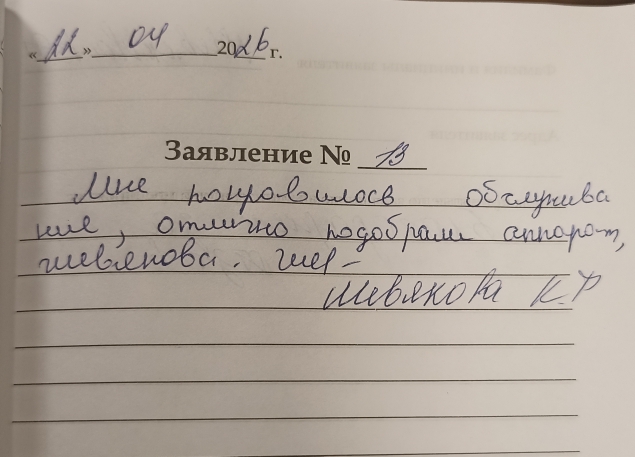 «22» 04 2026 г.
Заявление № 13
Мне понравилось обслужива
ние, отлично подобрали аппарат,
Шевякова.
Шевякова К.Ф